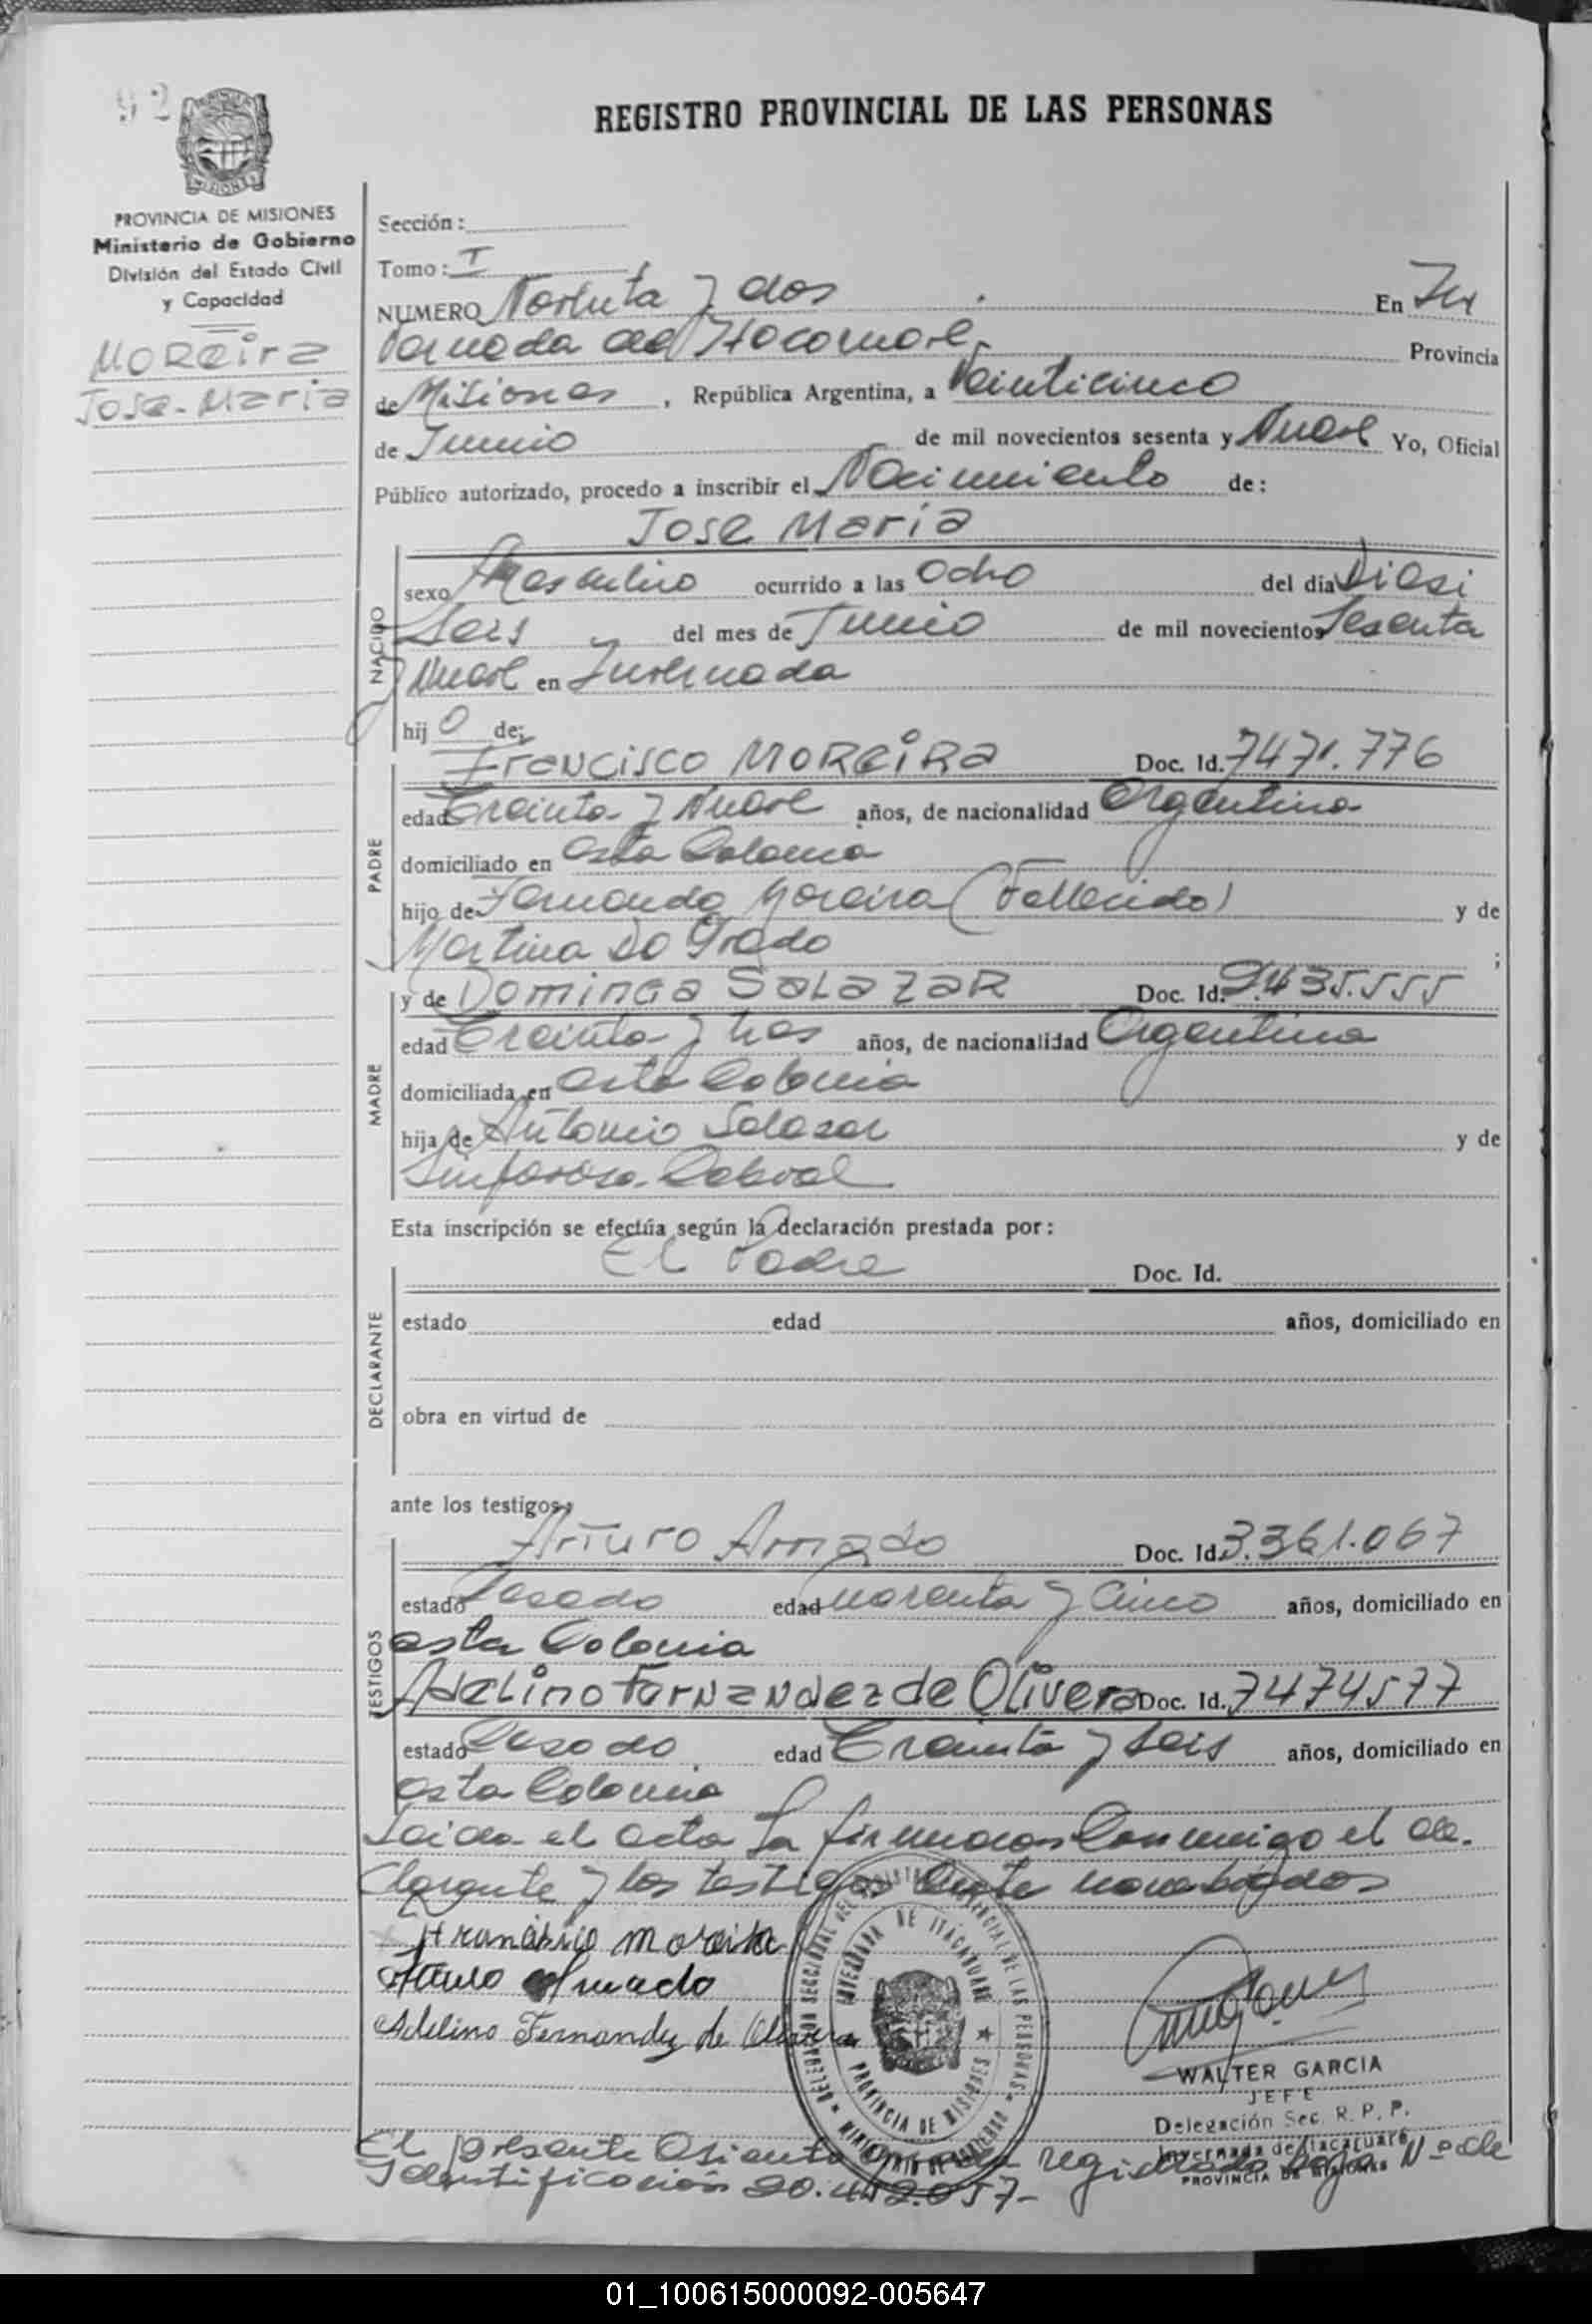 92
REGISTRO PROVINCIAL DE LAS PERSONAS
PROVINCIA DE MISIONES
Ministerio de Gobierno
División del Estado Civil
y Capacidad
MOREira
Jose-Maria
Sección:
Tomo: I
NUMERO Noventa y dos En In
vernada de Itacaruaré Provincia
de Misiones, República Argentina, a Veinticinco
de Junio de mil novecientos sesenta y Nueve Yo, Oficial
Público autorizado, procedo a inscribir el Nacimiento de:
Jose Maria
NACIDO
sexo Masculino ocurrido a las Ocho del día Dieci
Seis del mes de Junio de mil novecientos Sesenta
y Nueve en Invernada
hijo de:
PADRE
Francisco MOREiRa Doc. Id. 7471.776
edad Treinta y Nueve años, de nacionalidad Argentina
domiciliado en esta Colonia
hijo de Fernando Moreira (Fallecido) y de
Martina Do Prado ;
MADRE
y de Dominga SaLaZaR Doc. Id. 9.435.555
edad Treinta y tres años, de nacionalidad Argentina
domiciliada en esta Colonia
hija de Antonio Salazar y de
Sinforosa Cabral
Esta inscripción se efectúa según la declaración prestada por:
DECLARANTE
El Padre Doc. Id.
estado edad años, domiciliado en
obra en virtud de
ante los testigos:
TESTIGOS
Arturo Amado Doc. Id. 3.361.067
estado Casado edad cuarenta y Cinco años, domiciliado en
esta Colonia
Adelino Fernandez de Olivera Doc. Id. 7474577
estado Casado edad Treinta y Seis años, domiciliado en
esta Colonia
Leida el acta La firman Conmigo el de
clarante y los testigos Ante nombrados
moreira
Arturo Amado
Adelino Fernandez de Olivera
DELEGACION SECCIONAL DEL REGISTRO PROVINCIAL DE LAS PERSONAS
INVERNADA DE ITACARUARE
PROVINCIA DE MISIONES
MINISTERIO DE GOBIERNO
WALTER GARCIA
JEFE
Delegación Sec. R. P. P.
Invernada de Itacaruaré
PROVINCIA DE MISIONES
El presente Asiento registrado bajo Nº de
Identificación 20.442.057-
01_100615000092-005647